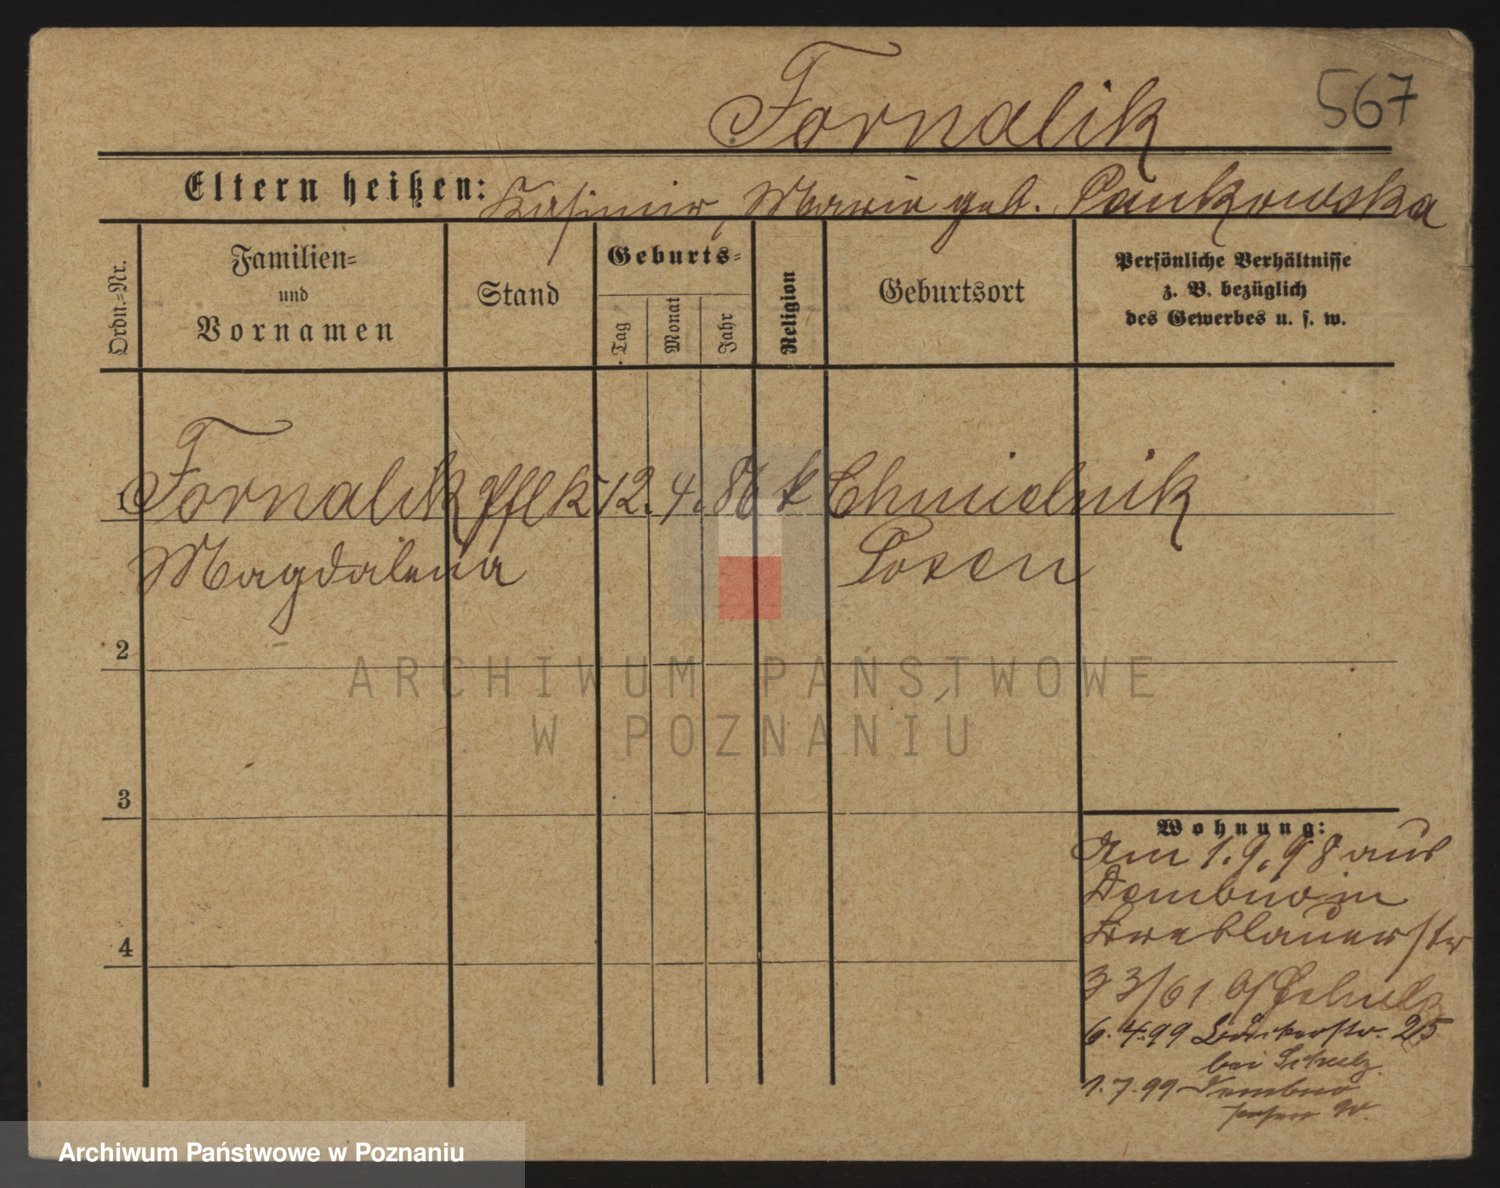 Fornalik
567
Eltern heißen: Kasimir, Marie geb. Pankowska
Ordn.-Nr.
Familien-
und
Vornamen
Stand
Geburts-
Tag
Monat
Jahr
Religion
Geburtsort
Persönliche Verhältnisse
z. B. bezüglich
des Gewerbes u. s. w.
1 Fornalik Pflk 12. 4. 86 k Chmielnik
Magdalena Posen
2
3
4
Wohnung:
Am 1.9.98 aus
Dembno in
Breslauerstr
33/61 b/ Schulz
6.4.99 Bäckerstr. 25
bei Schulz
1.7.99 Dembno
ARCHIWUM PAŃSTWOWE
W POZNANIU
Archiwum Państwowe w Poznaniu